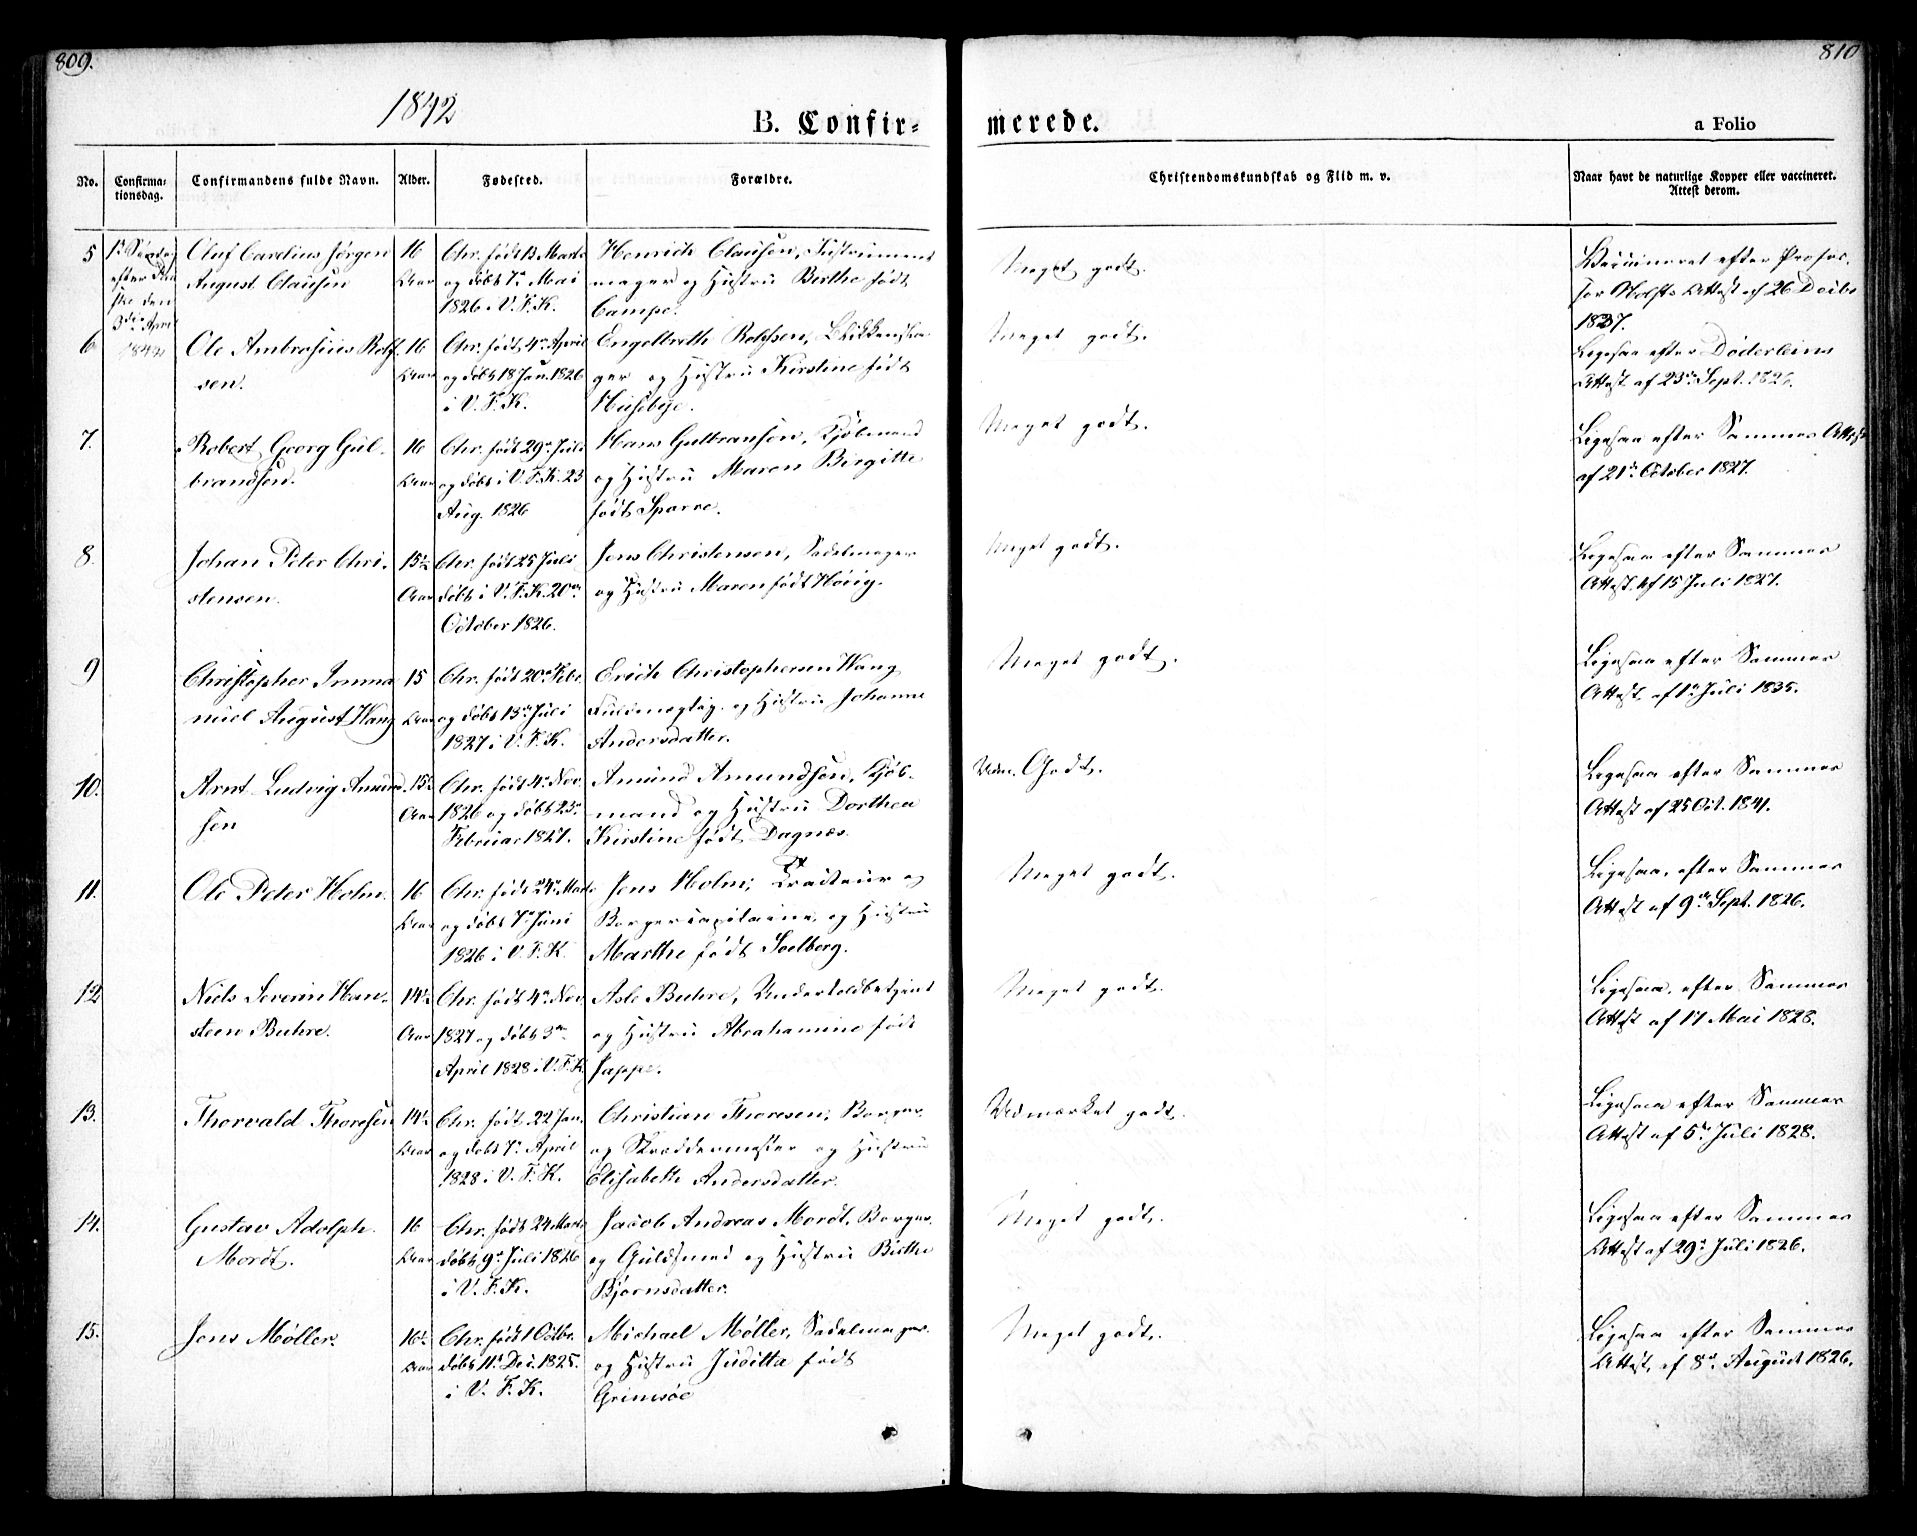 809.
810
1842
B. Confir-
merede.
a Folio
No.
Confirma-
tionsdag.
Confirmandens fulde Navn.
Alder.
Fødested.
Forældre.
Christendomskundskab og Flid m. v.
Naar havt de naturlige Kopper eller vaccineret.
Attest derom.
5
1ste Søndag
efter Paa
ske den
3die April
1842
Oluf Carelius Jørgen
August Clausen
16
Aar
Chr. født 13 Marts
og døbt 7de Mai
1826 i V. F. K.
Henrich Clausen, Instrument
mager og Hustru Birthe født
Campe.
Meget godt.
Vaccineret efter Profes-
sor Holsts Attest af 26 Decbr
1837.
6
Ole Ambrosius Rolf
sen.
16
Aar
Chr. født 4de April
og døbt 18 Jun. 1826
i V. F. K.
Engelbreth Rolfsen, Blikkensla-
ger og Hustru Kirstine født
Huseby.
Meget godt.
Ligesaa efter Døderleins
Attest af 23de Sept. 1826.
7.
Robert Georg Gul-
brandsen.
16
Aar
Chr. født 29de Juli
og døbt i V. F. K. 23
Aug. 1826
Hans Gulbransen, Kjøbmand
og Hustru Maren Birgitte
født Sparre.
Meget godt.
Ligesaa efter Sammes Attest
af 21de October 1827.
8.
Johan Peter Chri-
stensen.
15½
Aar
Chr. født 25 Juli
døbt i V. F. K. 20de
October 1826.
Jens Christensen, Sadelmager
og Hustru Maren født Høiig.
Meget godt.
Ligesaa efter Sammes
Attest af 15 Juli 1827.
9
Christopher Imma
nuel August Wang
15
Aar
Chr. født 20de Febr.
og døbt 15de Juli
1827 i V. F. K.
Erich Christophersen Wang
Fuldmægtig og Hustru Johanne
Andersdatter.
Meget godt.
Ligesaa efter Sammes
Attest af 1ste Juli 1835.
10.
Arnt Ludvig Amund
sen
15½
Aar
Chr. født 4de Nov.
1826 og døbt 23de
Februar 1827.
Amund Amundsen, Kjøb-
mand og Hustru Dorthea
Kirstine født Dagnæs.
Udm. Godt.
Ligesaa efter Sammes
Attest af 25 Oct. 1841.
11.
Ole Peter Holm.
16
Aar
Chr. født 24de Marts
og døbt 7de Juni
1826 i V. F. K.
Jens Holm, Traiteur og
Borgercapitaine, og Hustru
Marthe født Soelberg.
Meget godt.
Ligesaa, efter Sammes
Attest af 9de Sept. 1826.
12
Niels Severin Han-
steen Buhre.
14½
Aar
Chr. født 4de Nov.
1827 og døbt 3die
April 1828 i V. F. K.
Asle Buhre, Undertoldbetjent
og Hustru Abrahamine født
Jappe.
Meget godt.
Ligesaa, efter Sammes
Attest af 17 Mai 1828.
13.
Thorvald Thoresen
14½
Aar
Chr. født 22 Jan.
og døbt 7de April
1828 i V. F. K.
Christian Thoresen, Borger
og Skræddermester og Hustru
Elisabeth Andersdatter.
Udmærket godt.
Ligesaa efter Sammes
Attest af 5te Juli 1828.
14.
Gustav Adolph
Mordt.
16
Aar
Chr. født 24 Marts
døbt 9de Juli 1826
i V. F. K.
Jacob Andreas Mordt, Borger
og Guldsmed og Hustru Birthe
Bjørnsdatter.
Meget godt.
Ligesaa efter Sammes
Attest af 29de Juli 1826.
15.
Jens Møller.
16½
Aar
Chr. født 1 Octbr.
døbt 11te Dec. 1825.
i V. F. K.
Michael Møller, Sadelmager
og Hustru Juditta født
Grimsøe
Meget godt.
Ligesaa efter Sammes
Attest, af 8de August 1826.